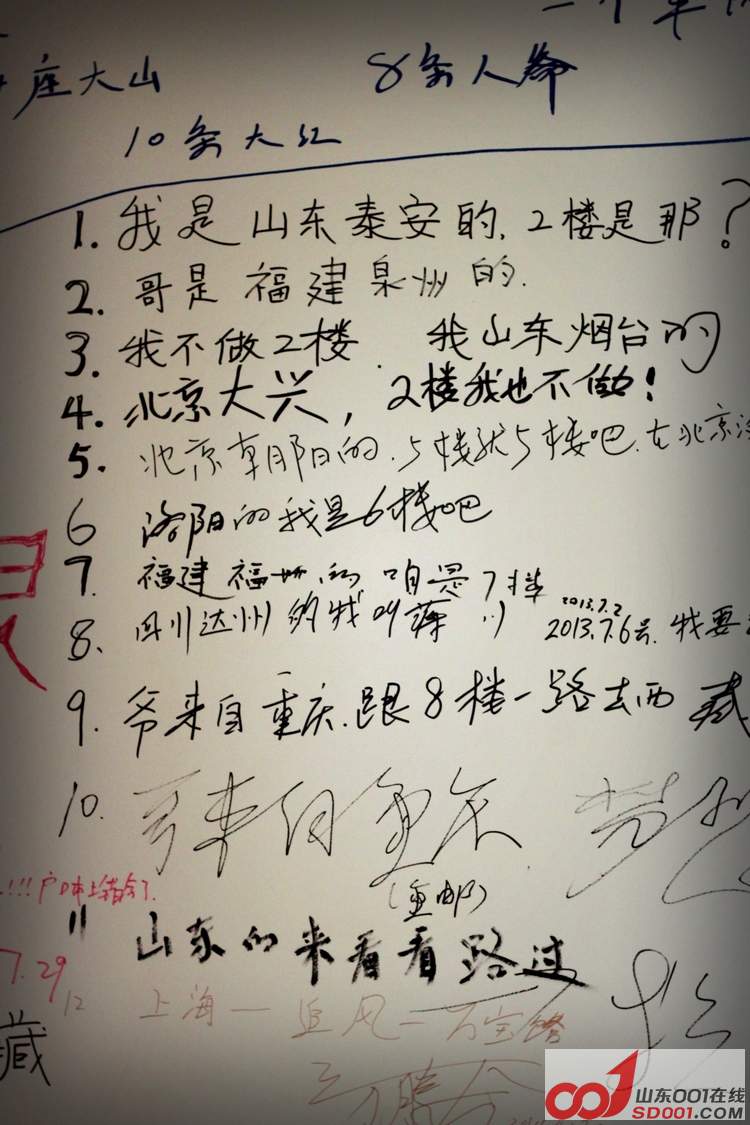 一个
座大山
8条人命
10条大江
1. 我是山东泰安的. 2楼是那?
2. 哥是福建泉州的.
3. 我不做2楼. 我山东烟台的
4. 北京大兴, 2楼我也不做!
5. 北京朝阳的. 5楼就5楼吧. 在北京
6 洛阳的我是6楼吧
7. 福建福州的咱是7楼
8. 四川达州的我叫
2013.7.2
2013.7.6号. 我要
9. 爷来自重庆. 跟8楼一路去西藏
10. 哥来自重庆
!!!户口本上错了.
11 山东的来看看路过
7.29
12 上海一追风一万宝路
藏
山东001在线
SD001.com